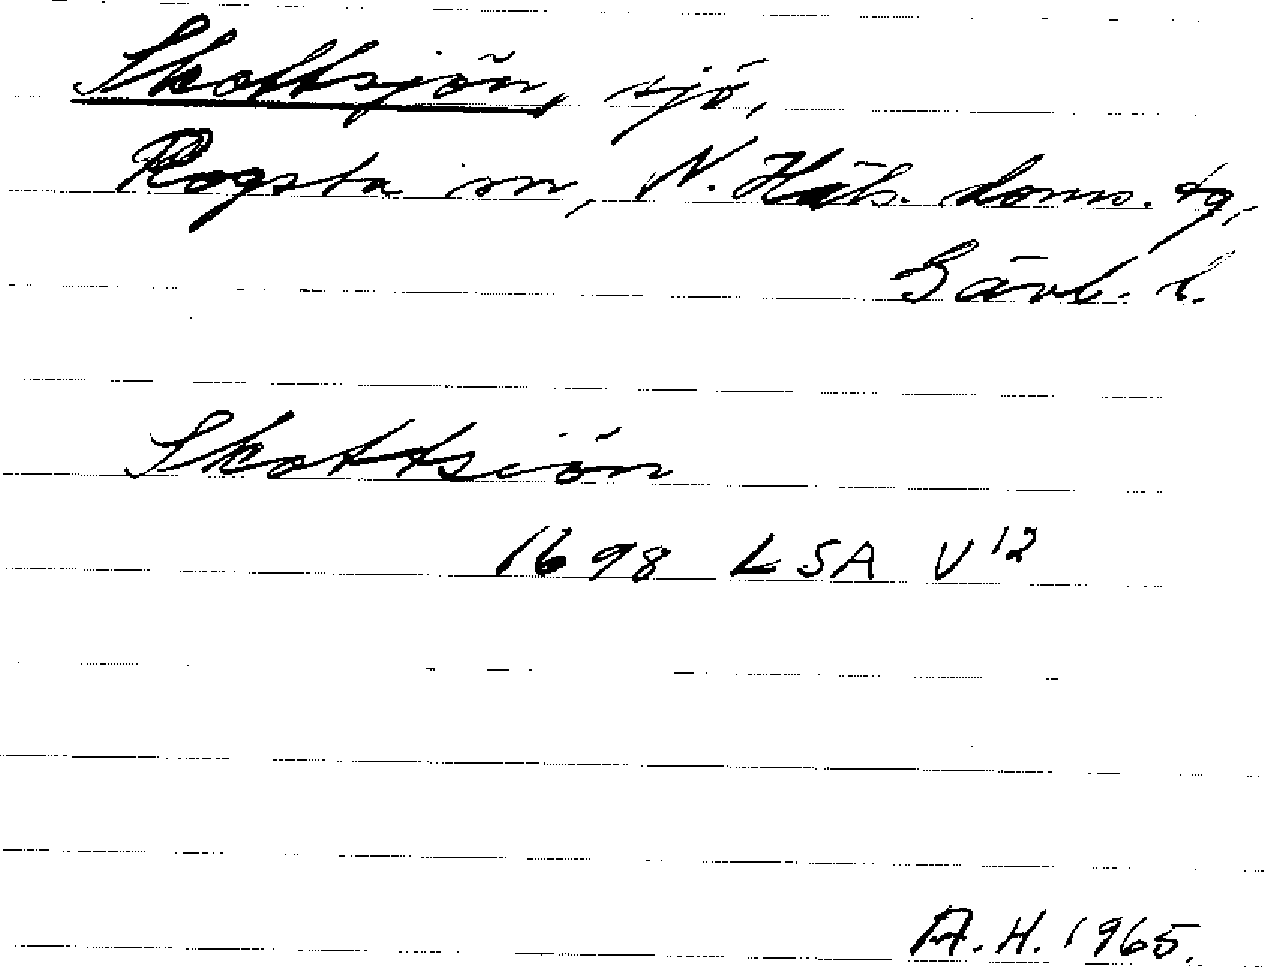 Skottsjön, sjö,
Rogsta sn, N. Häls. doms. tg,
Gävl. l.
Skottsiön
1698 LSA V 12
A. H. 1965.